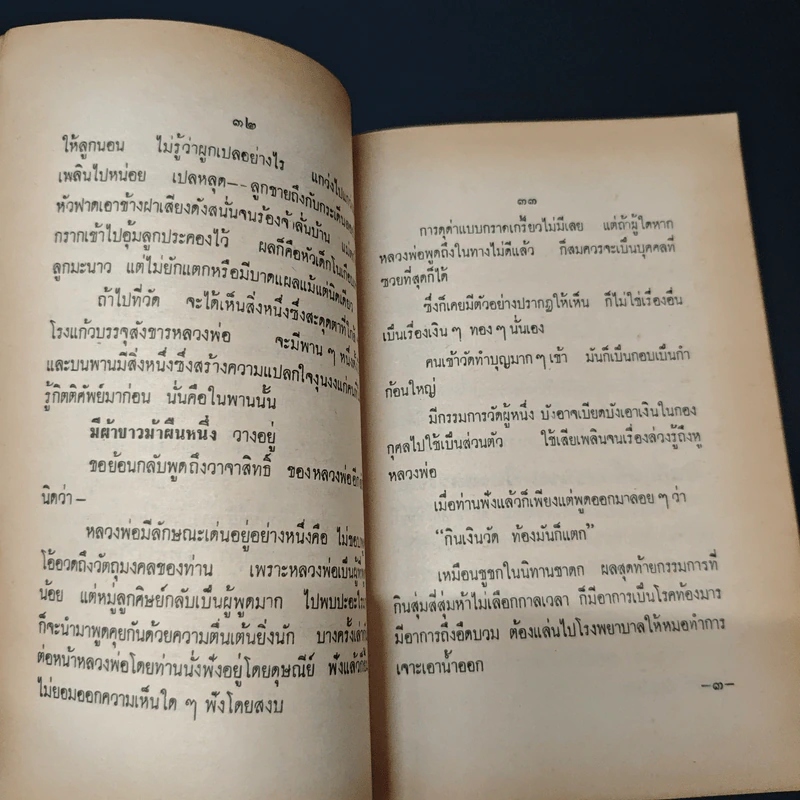 ๓๒
ให้ลูกนอน ไม่รู้ว่าผูกเปลอย่างไร แกว่งไป
เพลินไปหน่อย เปลหลุด--ลูกชายถึงกับกระเด็น
หัวฟาดเอาข้างฝาเสียงดังสนั่นจนร้องจ้าลั่นบ้าน
กรากเข้าไปอุ้มลูกประคองไว้ ผลก็คือหัวเด็กโน
ลูกมะนาว แต่ไม่ยักแตกหรือมีบาดแผลแม้แต่นิดเดียว
ถ้าไปที่วัด จะได้เห็นสิ่งหนึ่งซึ่งสะดุดตาที่
โรงแก้วบรรจุสังขารหลวงพ่อ จะมีพาน ๆ หนึ่ง
และบนพานมีสิ่งหนึ่งซึ่งสร้างความแปลกใจงุนงงแก่
รู้กิตติศัพย์มาก่อน นั่นคือในพานนั้น
มีผ้าขาวม้าผืนหนึ่ง วางอยู่
ขอย้อนกลับพูดถึงวาจาสิทธิ์ ของหลวงพ่อ
นิดว่า–
หลวงพ่อมีลักษณะเด่นอยู่อย่างหนึ่งคือ ไม่
โอ้อวดถึงวัตถุมงคลของท่าน เพราะหลวงพ่อเป็นผู้
น้อย แต่หมู่ลูกศิษย์กลับเป็นผู้พูดมาก ไปพบปะอะไร
ก็จะนำมาพูดคุยกันด้วยความตื่นเต้นยิ่งนัก บางครั้งเล่า
ต่อหน้าหลวงพ่อโดยท่านนั่งฟังอยู่โดยดุษณีย์ ฟังแล้ว
ไม่ยอมออกความเห็นใด ๆ ฟังโดยสงบ
๓๓
การดุด่าแบบกราดเกรี้ยวไม่มีเสย แต่ถ้าผู้ใดหาก
หลวงพ่อพูดถึงในทางไม่ดีแล้ว ก็สมควรจะเป็นบุคคลที่
ซวยที่สุดก็ได้
ซึ่งก็เคยมีตัวอย่างปรากฏให้เห็น ก็ไม่ใช่เรื่องอื่น
เป็นเรื่องเงิน ๆ ทอง ๆ นั้นเอง
คนเข้าวัดทำบุญมาก ๆ เข้า มันก็เป็นกอบเป็นกำ
ก้อนใหญ่
มีกรรมการวัดผู้หนึ่ง บังอาจเบียดบังเอาเงินในกอง
กุศลไปใช้เป็นส่วนตัว ใช้เสียเพลินจนเรื่องล่วงรู้ถึงหู
หลวงพ่อ
เมื่อท่านฟังแล้วก็เพียงแต่พูดออกมาลอย ๆ ว่า
“กินเงินวัด ท้องมันก็แตก”
เหมือนชูชกในนิทานชาดก ผลสุดท้ายกรรมการที่
กินสุ่มสี่สุ่มห้าไม่เลือกกาลเวลา ก็มีอาการเป็นโรคท้องมาร
มีอาการถึงอืดบวม ต้องแล่นไปโรงพยาบาลให้หมอทำการ
เจาะเอาน้ำออก
–๓–